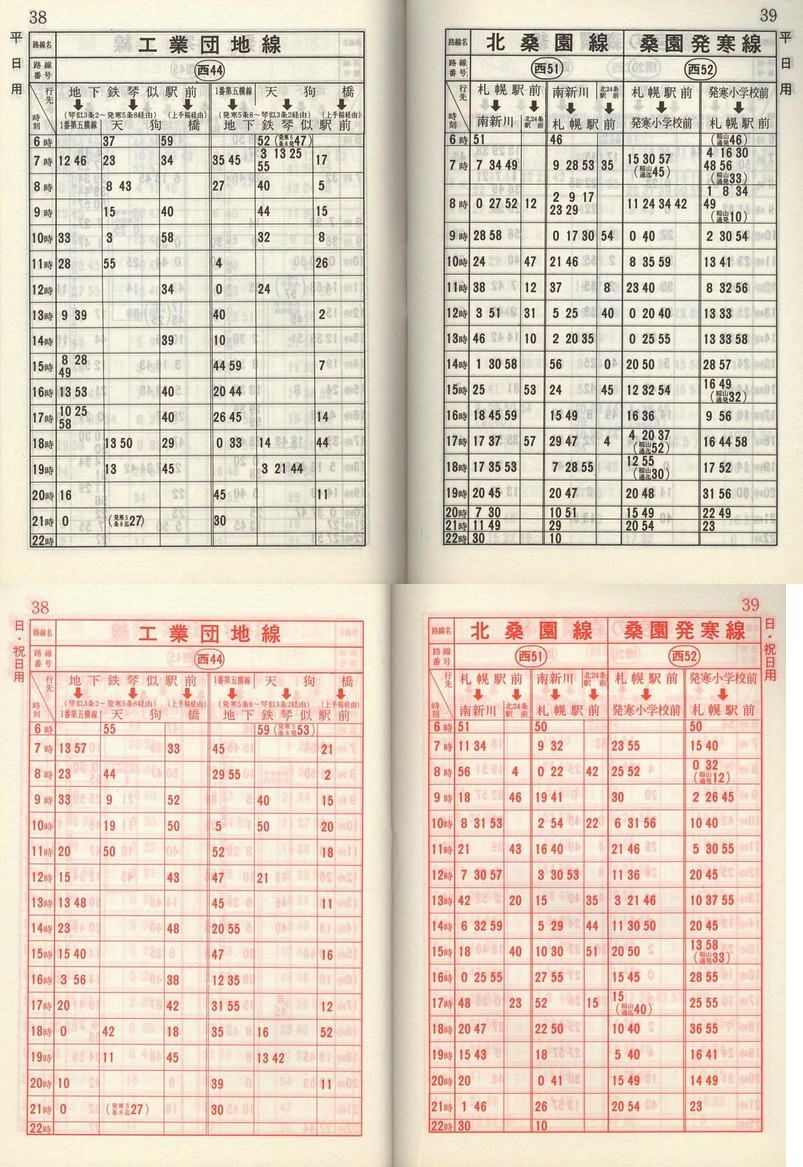 38
平日用
路線名 工業団地線
路線番号 西44
行先 地下鉄琴似駅前 1番第五横線 天狗橋
(琴似3条2~発寒5条8経由) (上手稲経由) (発寒5条8~琴似3条2経由) (上手稲経由)
時刻 1番第五横線 天狗橋 地下鉄琴似駅前
6時 37 59 52 (発寒5条8発47)
7時 12 46 23 34 35 45 3 13 25 55 17
8時 8 43 27 40 5
9時 15 40 44 15
10時 33 3 58 32 8
11時 28 55 4 26
12時 34 0 24
13時 9 39 40 2
14時 39 10
15時 8 28 49 44 59 7
16時 13 53 40 20 44
17時 10 25 58 40 26 45 14
18時 13 50 29 0 33 14 44
19時 13 45 3 21 44
20時 16 45 11
21時 0 (発寒5条8迄27) 30
22時
39
平日用
路線名 北桑園線 桑園発寒線
路線番号 西51 西52
行先 札幌駅前 南新川 北24条駅前 札幌駅前 発寒小学校前
時刻 南新川 北24条駅前 札幌駅前 発寒小学校前 札幌駅前
6時 51 46 (稲山通発46)
7時 7 34 49 9 28 53 35 15 30 57 (稲山通迄45) 4 16 30 48 56 (稲山通発33)
8時 0 27 52 12 2 9 17 23 29 11 24 34 42 1 8 34 49 (稲山通発10)
9時 28 58 0 17 30 54 0 40 2 30 54
10時 24 47 21 46 8 35 59 13 41
11時 38 12 37 8 23 40 8 32 56
12時 3 51 31 5 25 40 0 20 40 13 33
13時 46 10 2 20 35 0 25 55 13 33 58
14時 1 30 58 56 0 20 50 28 57
15時 25 53 24 45 12 32 54 16 49 (稲山通発32)
16時 18 45 59 15 49 16 36 9 56
17時 17 37 57 29 47 4 4 20 37 (稲山通迄52) 16 44 58
18時 17 35 53 7 28 55 12 55 (稲山通迄30) 17 52
19時 20 45 20 47 20 48 31 56
20時 7 30 10 51 15 49 22 49
21時 11 49 29 20 54 23
22時 30 10
38
日・祝日用
路線名 工業団地線
路線番号 西44
行先 地下鉄琴似駅前 1番第五横線 天狗橋
(琴似3条2~発寒5条8経由) (上手稲経由) (発寒5条8~琴似3条2経由) (上手稲経由)
時刻 1番第五横線 天狗橋 地下鉄琴似駅前
6時 55 59 (発寒5条8発53)
7時 13 57 33 45 21
8時 23 44 29 55 2
9時 33 9 52 40 15
10時 19 50 5 50 20
11時 20 50 52 18
12時 15 43 47 21
13時 13 48 45 36 11
14時 23 48 20 55
15時 15 40 47 16
16時 3 56 38 12 35
17時 20 42 31 55 12
18時 0 42 18 35 16 52
19時 11 45 13 42
20時 10 39 11
21時 0 (発寒5条8迄27) 30
22時
39
日・祝日用
路線名 北桑園線 桑園発寒線
路線番号 西51 西52
行先 札幌駅前 南新川 北24条駅前 札幌駅前 発寒小学校前
時刻 南新川 北24条駅前 札幌駅前 発寒小学校前 札幌駅前
6時 51 50 50
7時 11 34 9 32 23 55 15 40
8時 56 4 0 22 42 25 52 0 32 (稲山通発12)
9時 18 46 19 41 30 2 26 45
10時 8 31 53 2 54 22 6 31 56 10 40
11時 21 43 16 40 21 46 5 30 55
12時 7 30 57 3 30 53 11 36 20 45
13時 42 20 15 35 3 21 46 10 37 55
14時 6 32 59 5 29 44 11 30 50 20 45
15時 18 40 10 30 51 20 50 13 58 (稲山通発33)
16時 0 25 55 27 55 15 45 28 55
17時 48 23 52 15 15 (稲山通迄40) 25 55
18時 20 47 22 50 10 40 36 55
19時 15 43 18 5 40 16 41
20時 20 0 41 15 49 14 49
21時 1 46 26 20 54 23
22時 30 10